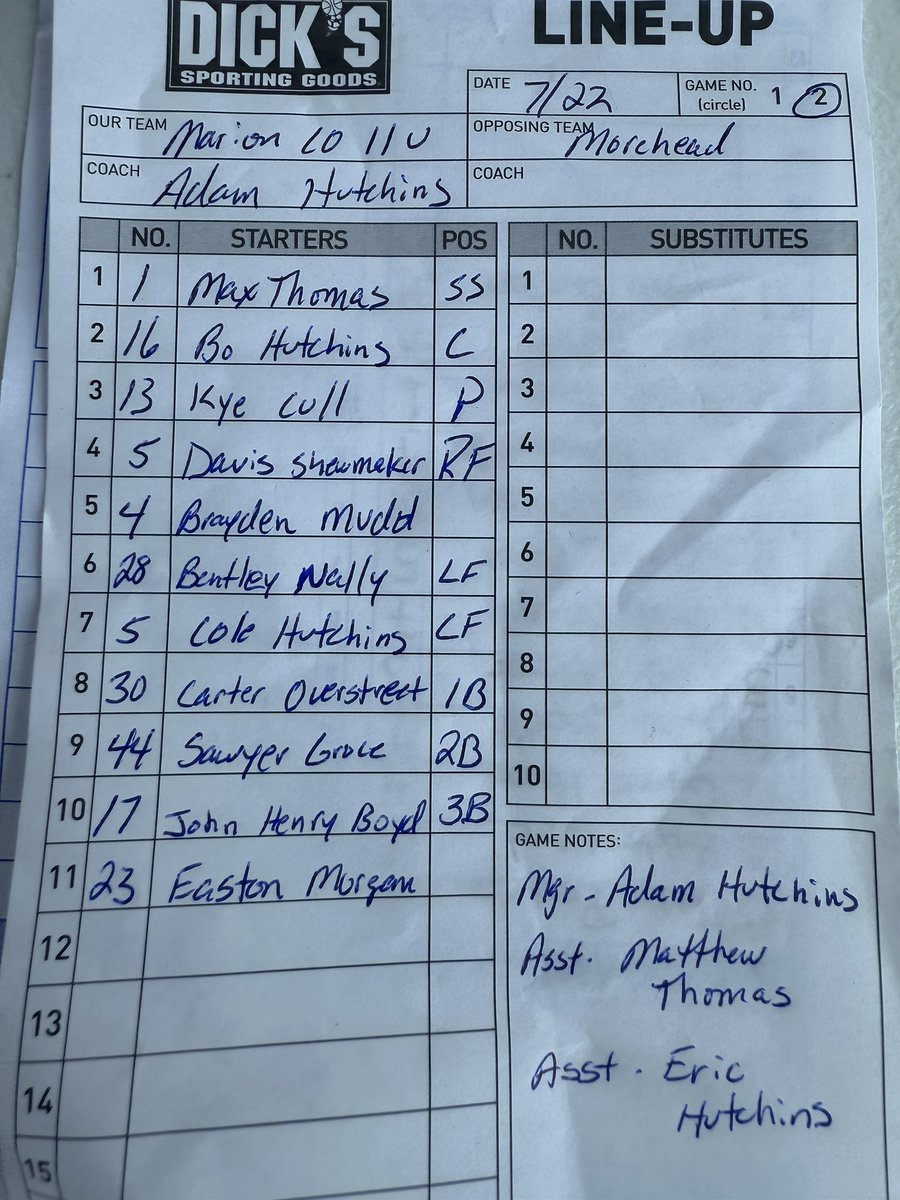 DICK'S
SPORTING GOODS
LINE-UP
DATE 7/22 GAME NO. (circle) 1 2
OUR TEAM Marion CO 11U OPPOSING TEAM Morehead
COACH Adam Hutchins COACH
NO. STARTERS POS
1 1 Max Thomas SS
2 16 Bo Hutchins C
3 13 Kye Cull P
4 5 Davis Shewmaker RF
5 4 Brayden Mudd
6 28 Bentley Nally LF
7 5 Cole Hutchins CF
8 30 Carter Overstreet 1B
9 44 Sawyer Grove 2B
10 17 John Henry Boyd 3B
11 23 Easton Morgan
12
13
14
15
NO. SUBSTITUTES
1
2
3
4
5
6
7
8
9
10
GAME NOTES:
Mgr - Adam Hutchins
Asst. Matthew
Thomas
Asst. Eric
Hutchins